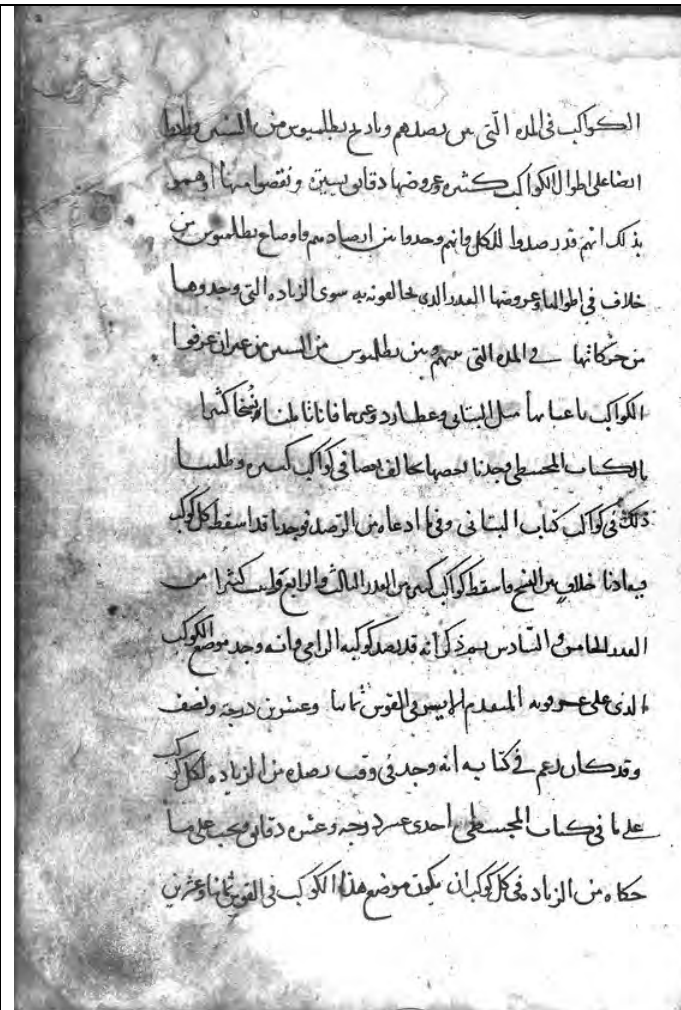 الكواكب في المدة التي بين رصدهم وتاريخ بطلميوس من السنين
ايضا على اطوال الكواكب كثيرة عروضها دقائق يسيرة ونقصوا منها اوهموا
بذلك انهم قد رصدوا الكل وانهم وجدوا بين ارصادهم واوضاع بطلميوس من
خلاف في اطوالها وعروضها القدر الذي خالفوه به سوى الزيادة التي وجدوها
من حركاتها في المدة التي بينهم وبين بطلميوس من السنين من غير ان عرفوا
الكواكب باعيانها مثل البتاني وعطارد وغيرهما فانا تاملنا نسخا كثيرا
بالكتاب المجسطي وجدنا بعضها يخالف بعضا في كواكب كثيرة وطلبنا
ذلك في كواكب كتاب البتاني وفيما ادعاه من الرصد فوجدنا قد اسقط كل كوكب
خلاف بين النسخ فاسقط كواكب كثيرة من القدر الثالث والرابع كثيرا من
القدر الخامس والسادس ثم ذكر انه قد رصد كوكبة الرامي وانه وجد موضع الكوكب
الذي على عرقوبه المتقدم الايسر في القوس ثمانيا وعشرين درجة ونصف
وقد كان زعم في كتابه انه وجد في وقت رصده من الزيادة لكل كوكب
على ما في كتاب المجسطي احدى عشر درجة وعشر دقائق ويجب على ما
حكاه من الزيادة في كل كوكب ان يكون موضع هذا الكوكب في القوس ثمانيا وعشرين